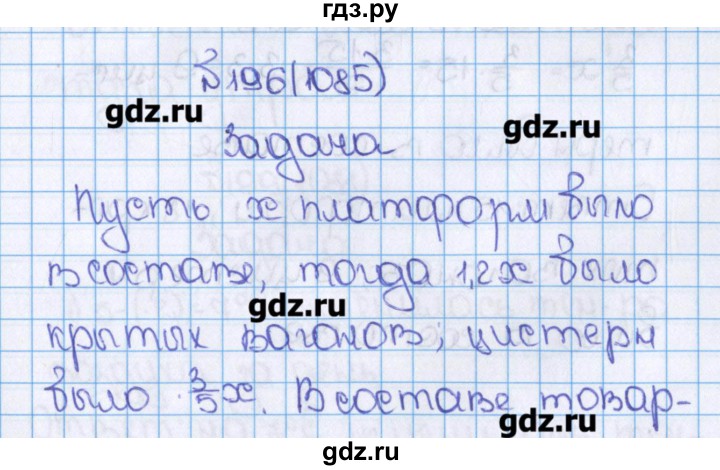 гдз.ру
№196(1085)
gdz.ru
gdz.ru
Задача
Пусть x платформ было
в составе, тогда 1,2x было
gdz.ru
крытых вагонов, цистерн
было 3/5 x. В составе товар-
gdz.ru
gdz.ru